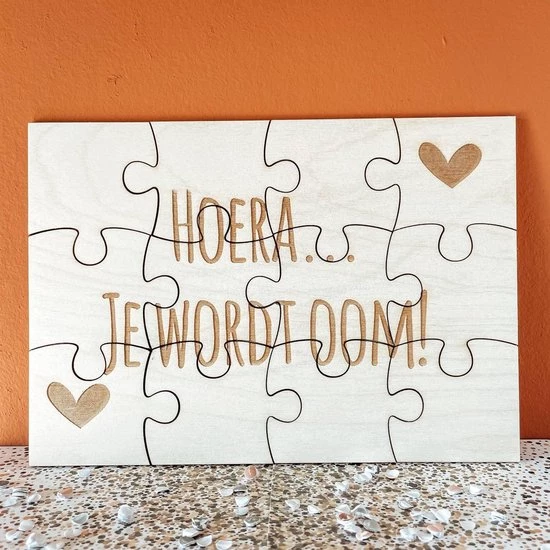 HOERA...
JE WORDT OOM!